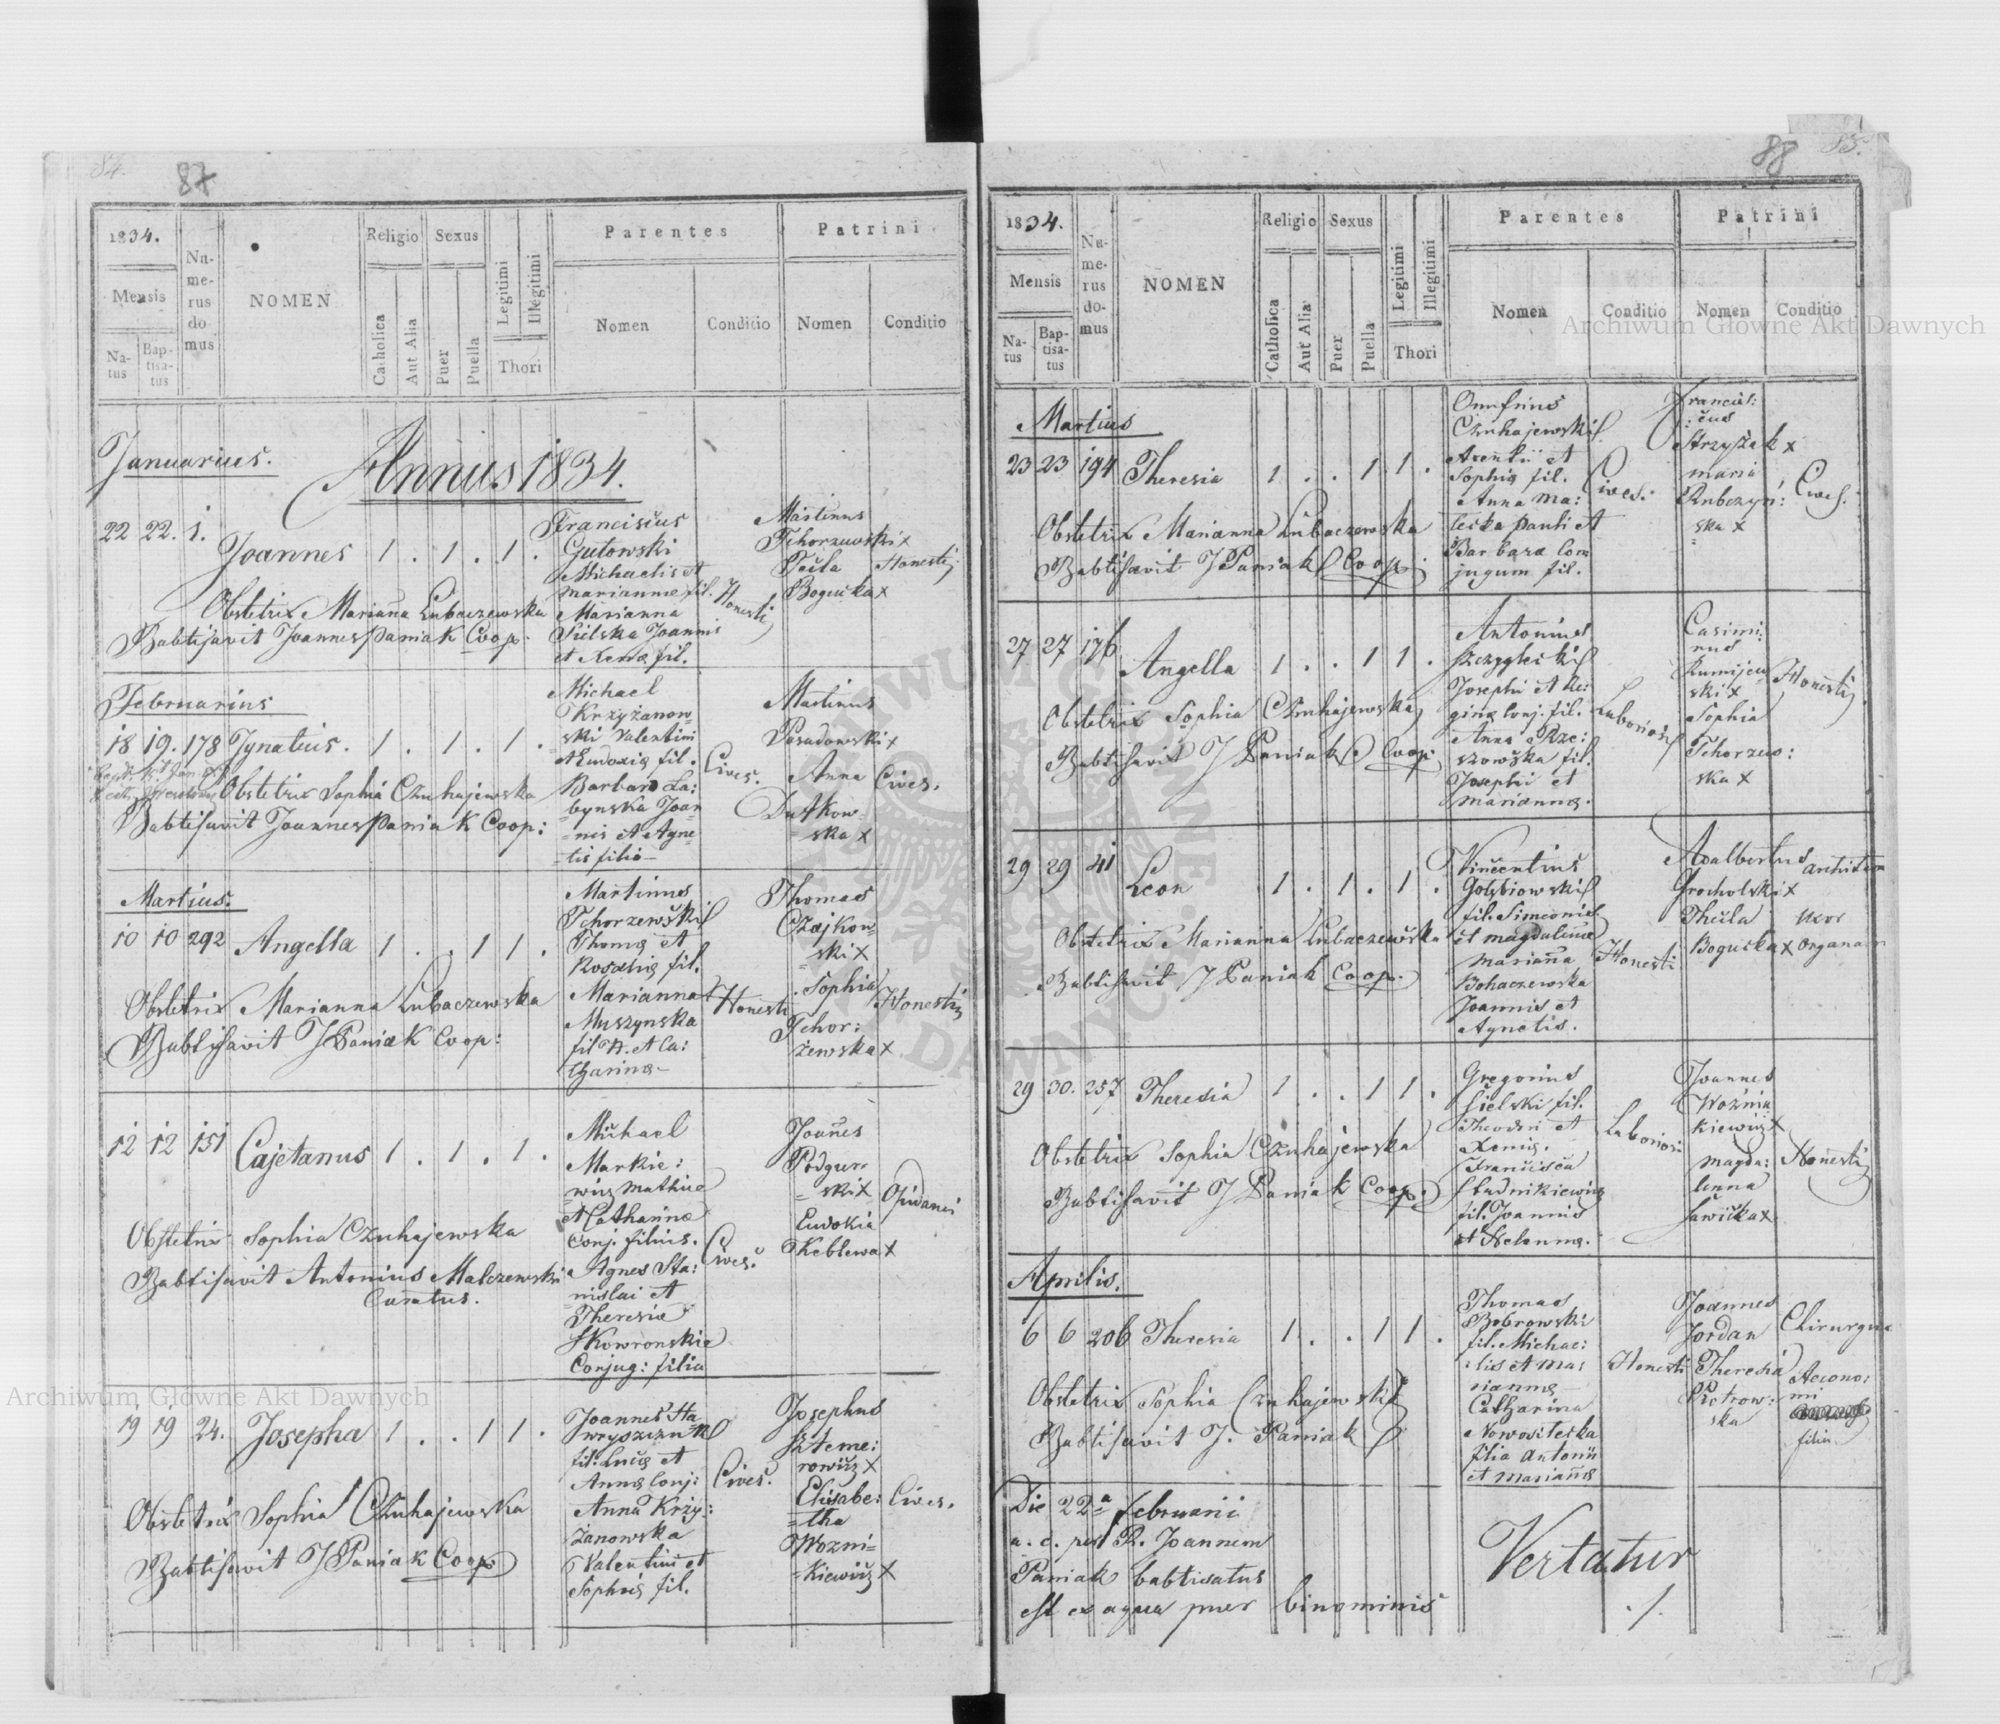 84.
87
1834.
Mensis
Na-
tus
Bap-
tisa-
tus
Nu-
me-
rus
do-
mus
NOMEN
Religio
Catholica
Aut Alia
Sexus
Puer
Puella
Legitimi
Illegitimi
Thori
Parentes
Nomen
Conditio
Patrini
Nomen
Conditio
Januarius.
Annus 1834.
22 22. 1. Joannes 1 . 1 . 1 .
Obstetrix Marianna Lubaczewska
Babtisavit Joannes Paniak Coop.
Franciscus
Gutowski
Michaelis et
Marianna fil.
Marianna
Sielska Joannis
et Xenæ fil.
Honesti
Martinus
Tchorzewski x
Tecla
Bogucka x
Honesti
Februarius
18 19. 178 Ignatius. 1 . 1 . 1 .
Obstetrix Sophia Czuhajewska
Babtisavit Joannes Paniak Coop:
Michael
Krzyżanow-
ski Valentini
et Eudoxiæ fil.
Barbara La:
bynska Joan
nis et Agne
tis filia
Cives.
Martinus
Posadowski x
Anna
Dutkow-
ska x
Cives.
Martius.
10 10 292 Angella 1 . . 1 1 .
Obstetrix Marianna Lubaczewska
Babtisavit J Paniak Coop:
Martinus
Tchorzewski
Thomæ et
Rosaliæ fil.
Marianna
Muszynska
fil N. et Ca:
tharinæ
Honesti
Thomas
Czajkow-
ski x
Sophia
Tchor:
żewska x
Honesti
12 12 151 Cajetanus 1 . 1 . 1 .
Obstetrix Sophia Czuhajewska
Babtisavit Antonius Malczewski
Curatus.
Michael
Markie:
wicz Mathiæ
et Catharinæ
Conj. filius.
Agnes Sta:
nislai et
Theresiæ
Skowronskie
Conjug: filia
Cives.
Joannes
Podgur-
ski x
Eudokia
Keblewa x
Opidani
19 19 24. Josepha 1 . . 1 1 .
Obstetrix Sophia Czuhajewska
Babtisavit J Paniak Coop
Joannes Ha
wryszczuk
fil. Lucæ et
Annæ Conj:
Anna Krzy:
żanowska
Valentini et
Sophiæ fil.
Cives.
Josephus
Szteme:
rowicz x
Elisabe:
tha
Wozni=
Kiewicz x
Cives.
88
85.
1834.
Mensis
Na-
tus
Bap-
tisa-
tus
Nu-
me-
rus
do-
mus
NOMEN
Religio
Catholica
Aut Alia
Sexus
Puer
Puella
Legitimi
Illegitimi
Thori
Parentes
Nomen
Conditio
Patrini
Nomen
Conditio
Martius
23 23 194 Theresia 1 . . 1 1 .
Obstetrix Marianna Lubaczewska
Babtisavit J Paniak Coop:
Onufrius
Czuhajewski
Arentii et
Sophiæ fil.
Anna Ma:
lecka Pauli et
Barbara Con
jugum fil.
Cives.
Francis:
cus
Strzyżak x
Maria
Rubczyń:
ska x
Cives.
27 27 176 Angella 1 . . 1 1 .
Obstetrix Sophia Czuhajewska
Babtisavit J Paniak Coop:
Antonius
Szczygielski
Josephi et Re:
ginæ Conj. fil.
Anna Rze:
szowska fil.
Josephi et
Mariannæ.
Laboriosi
Casimi:
rus
ski x
Sophia
Tchorzew:
ska x
Honesti
29 29 41 Leon 1 . 1 . 1 .
Obstetrix Marianna Lubaczewska
Babtisavit J Paniak Coop.
Vincentius
Gołębiowski
fil. Simeonis
et Magdalenæ
Marianna
Bohaczewska
Joannis et
Agnetis.
Honesti
Adalbertus
Grocholski x
Thecla
Bogucka x
uxor
29 30. 257 Theresia 1 . . 1 1 .
Obstetrix Sophia Czuhajewska
Babtisavit J Paniak Coop.
Gregorius
Sielski fil.
Theodori et
Xeniæ.
Francisca
Studnikiewicz
fil. Joannis
et Helennæ.
Laboriosi
Joannes
Woźnia
kiewicz x
Magda:
lenna
Sawicka x
Honesti
Aprilis.
6 6 206 Theresia 1 . . 1 1 .
Obstetrix Sophia Czuhajewska
Babtisavit J. Paniak
Thomas
Bobrowski
fil. Michae:
lis et Ma:
riannæ
Catharina
Nowosielska
filia Antonii
et Mariannæ
Honesti
Joannes
Jordan
Theresia
Piotrow:
ska
Chirurgus
Aecono:
mi
filia
Die 22ª Februarii
a. c. per R. Joannem
Paniak babtisatus
est ex aqua puer binominis
Vertatur
./.
Archiwum Główne Akt Dawnych
Archiwum Główne Akt Dawnych